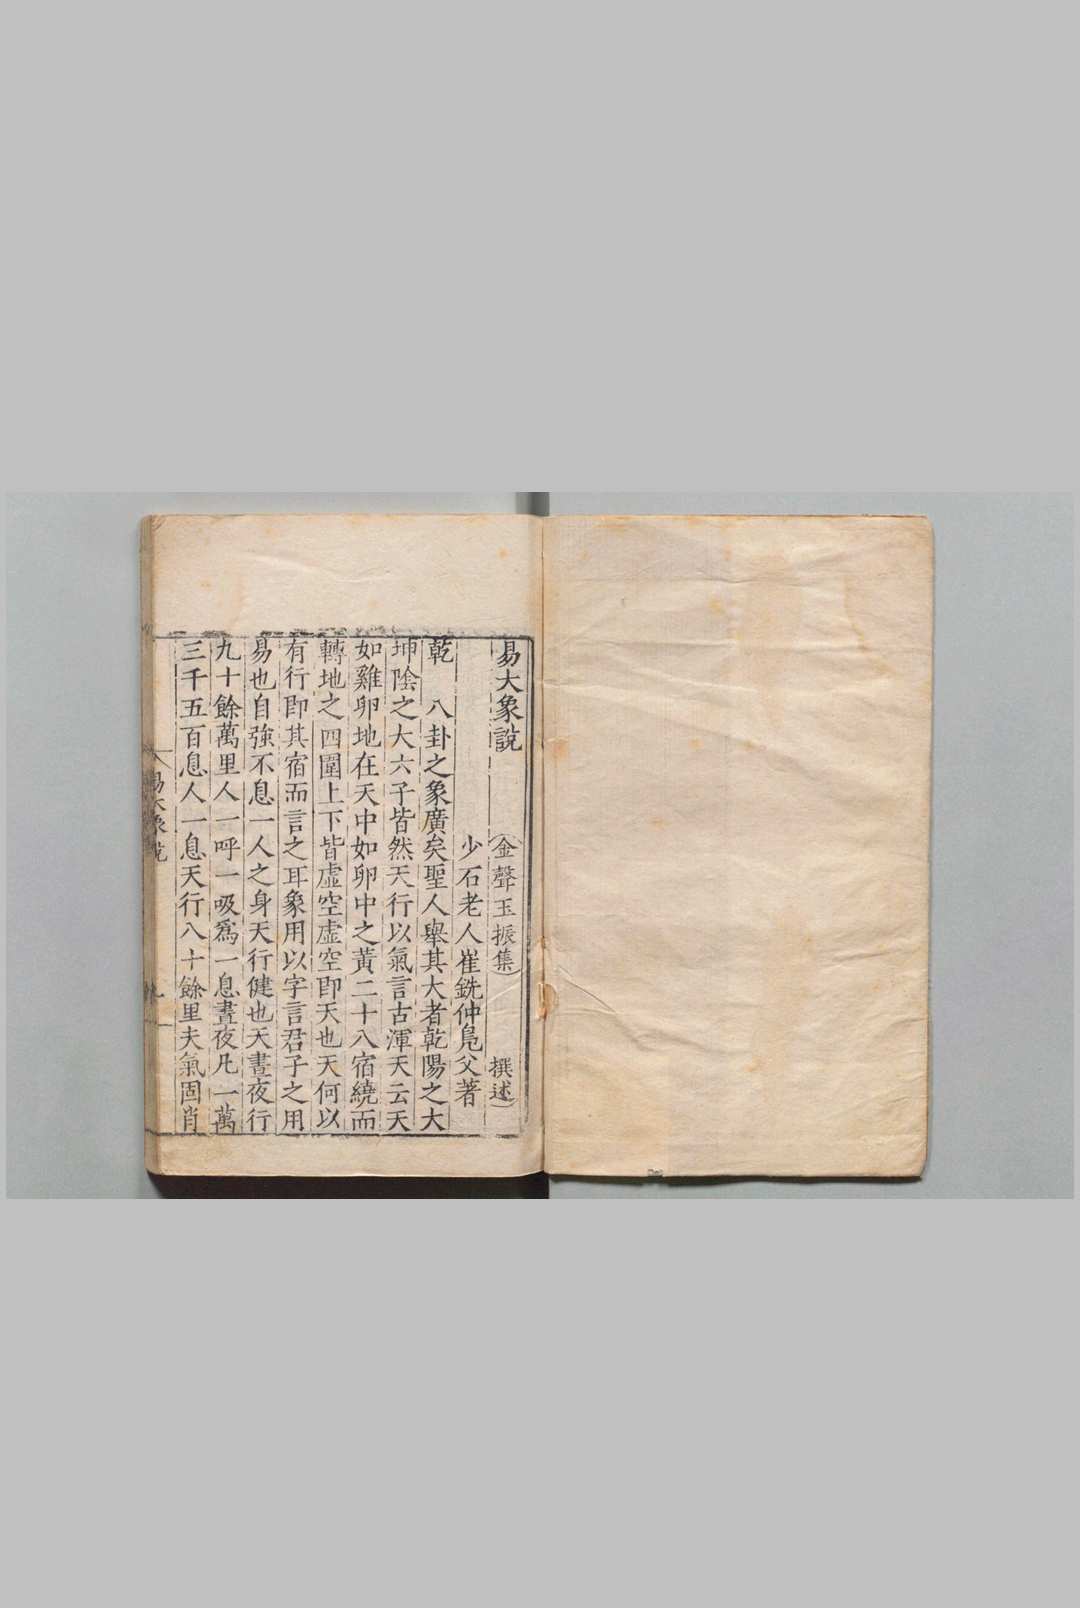 易大象說 金聲玉振集 撰述
少石老人崔銑仲鳧父著
乾 八卦之象廣矣聖人舉其大者乾陽之大
坤陰之大六子皆然天行以氣言古渾天云天
如雞卵地在天中如卵中之黃二十八宿繞而
轉地之四圍上下皆虛空虛空即天也天何以
有行即其宿而言之耳象用以字言君子之用
易也自強不息一人之身天行健也天晝夜行
九十餘萬里人一呼一吸爲一息晝夜凡一萬
三千五百息人一息天行八十餘里夫氣固肖
易大象說